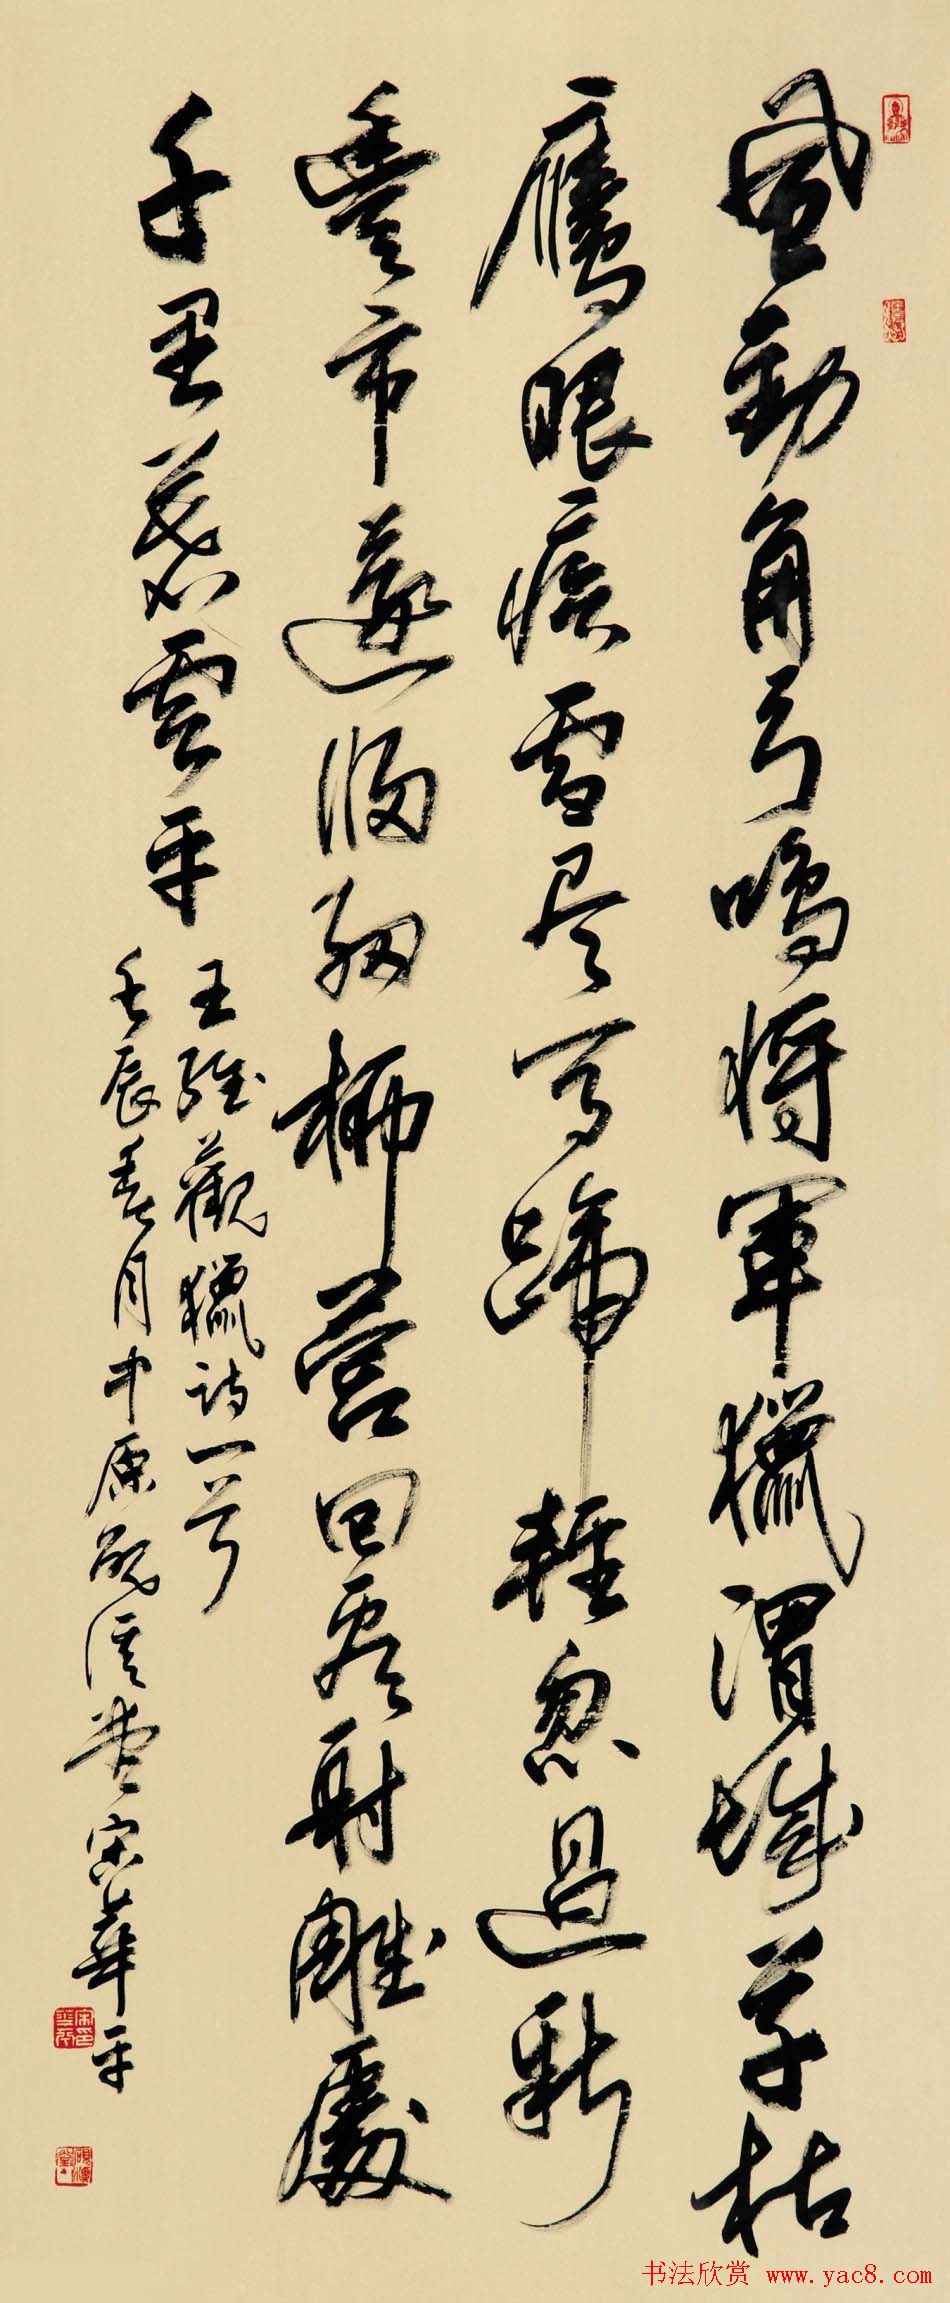 風勁角弓鳴將軍獵渭城草枯
鷹眼疾雪尽馬蹄輕忽過新
豐市還歸細柳營回看射雕處
千里暮雲平
王維觀獵詩一首
壬辰春月中原硯溪堂宋華平
书法欣赏 www.yac8.com